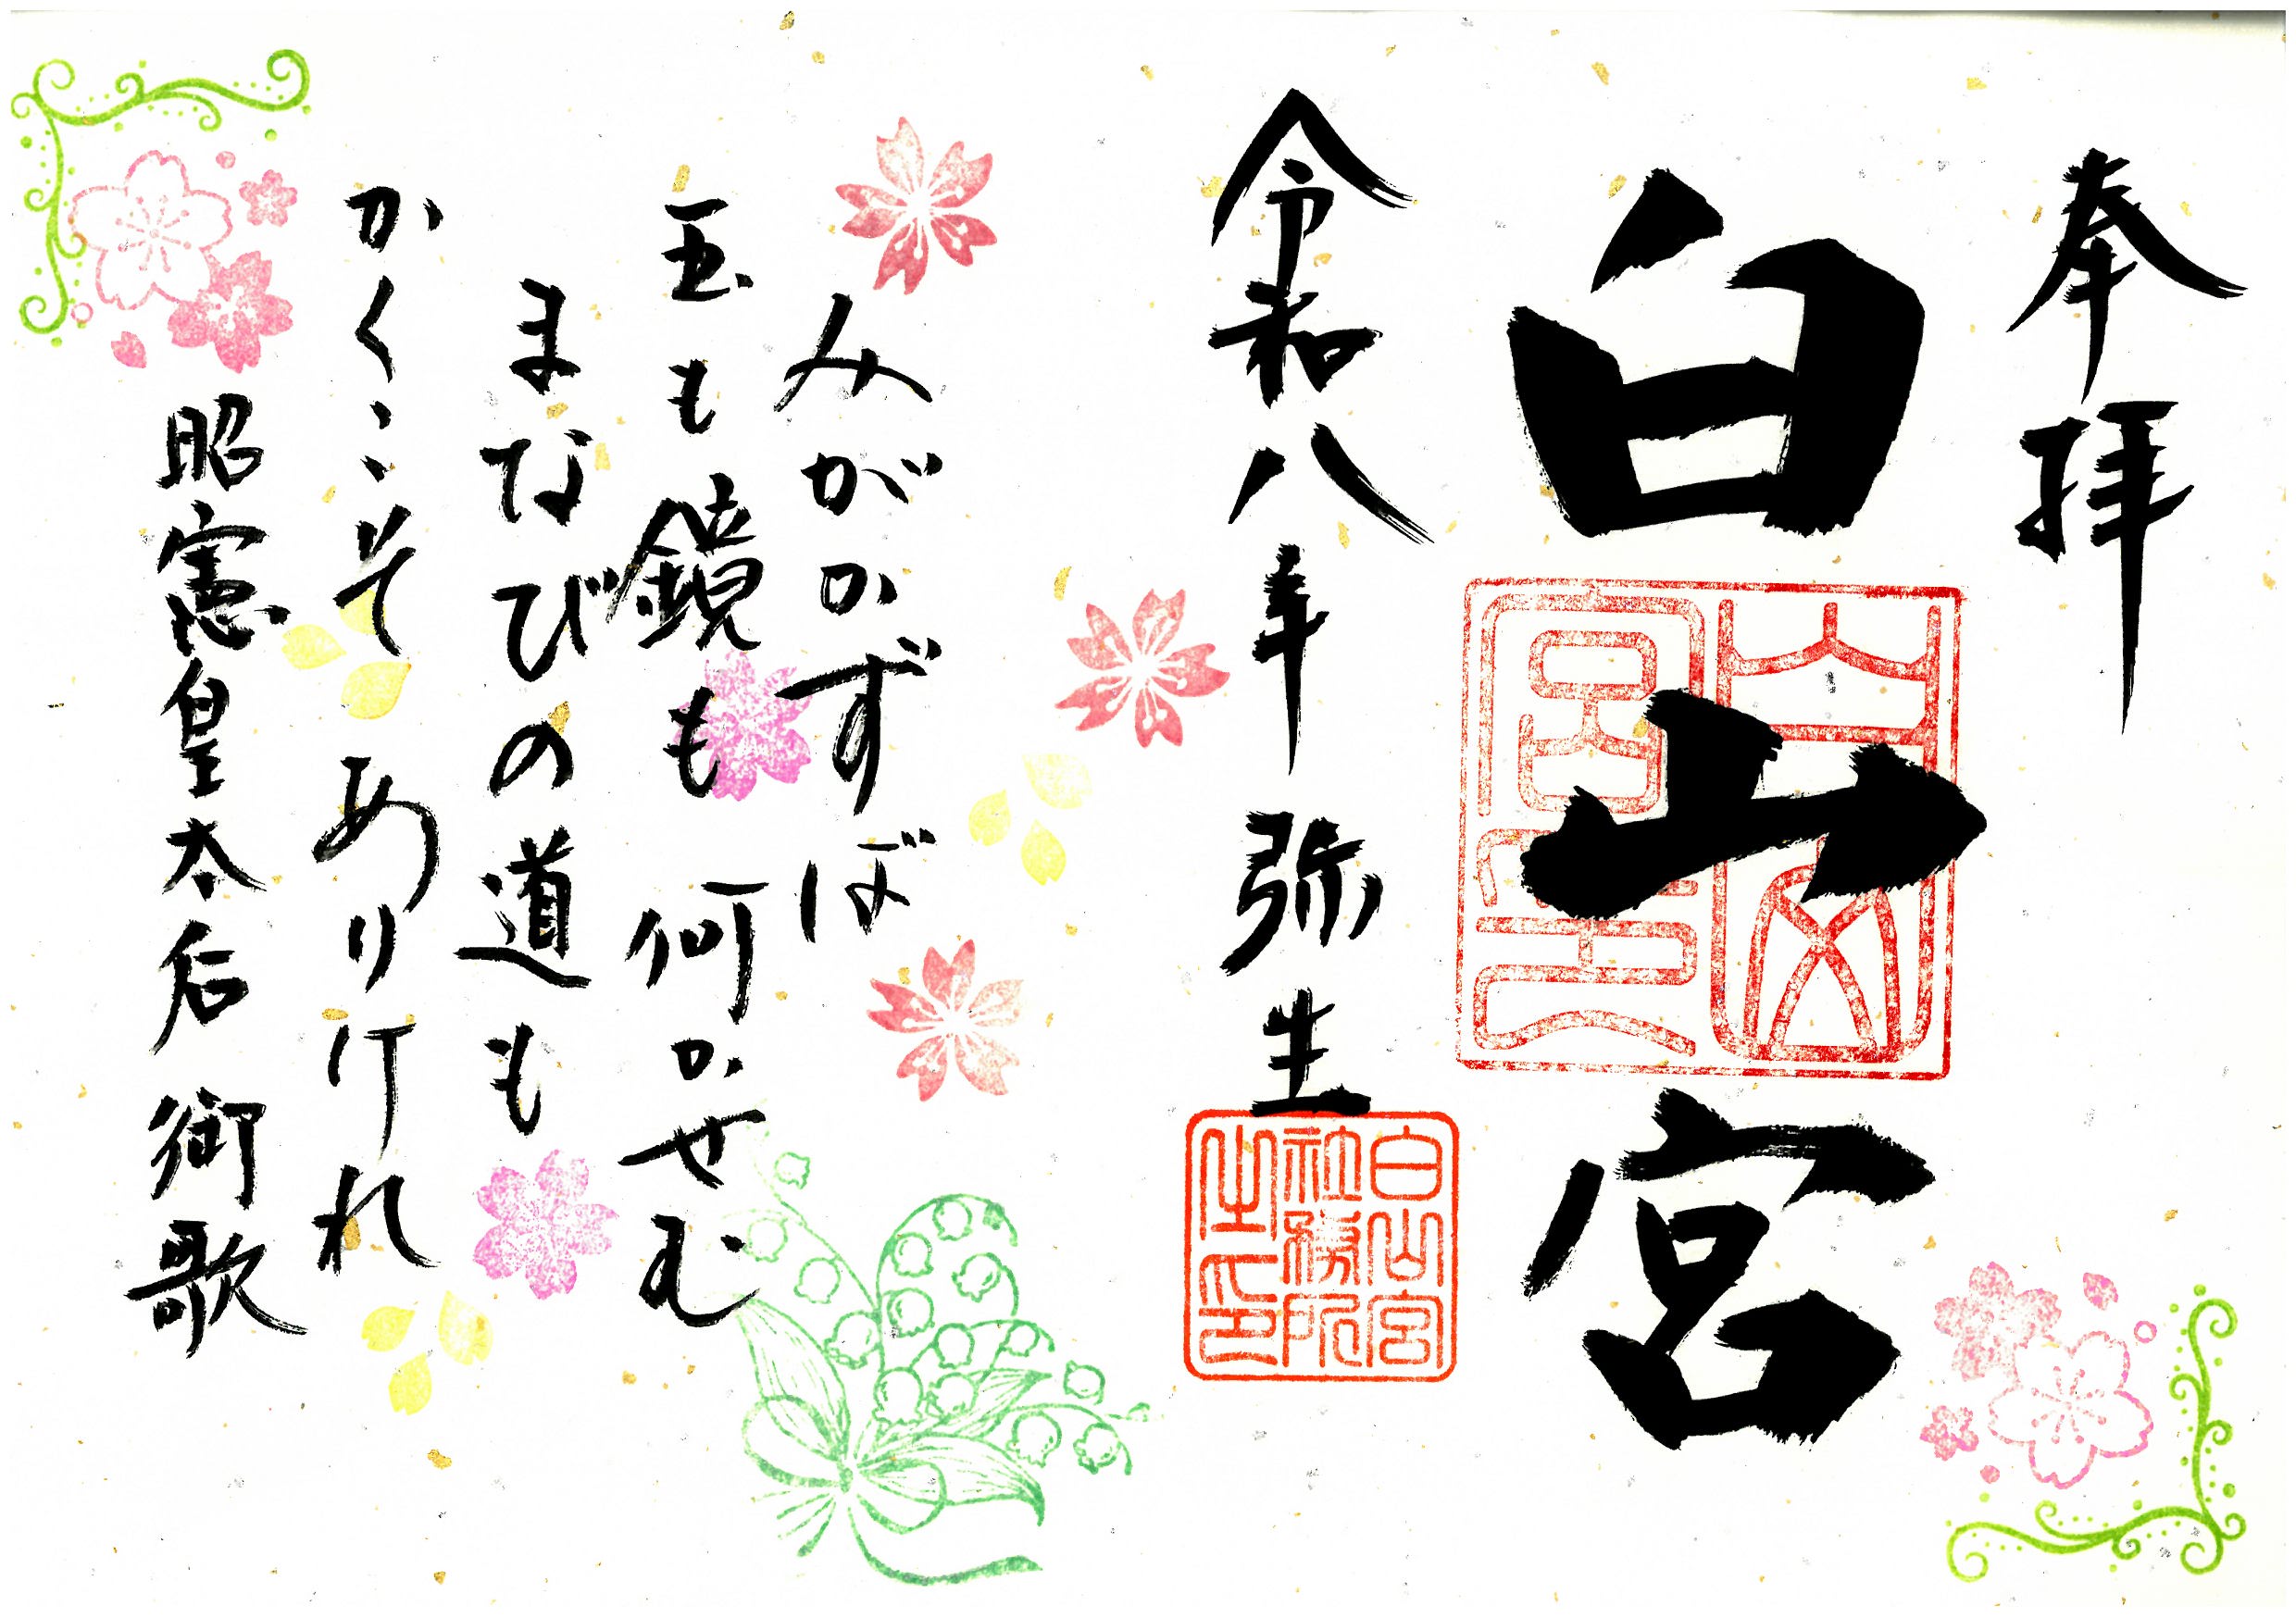 奉拝
白山宮
白山宮印
令和八年弥生
白山宮
社務所
之印
みがかずば
玉も鏡も何かせむ
まなびの道も
かくこそありけれ
昭憲皇太后御歌